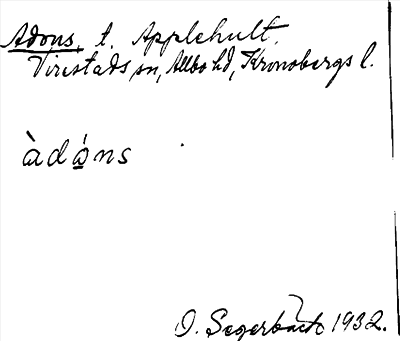 Adons, t. Applehult,
Virestads sn, Allbo hd, Kronobergs l.
àdó̱ns
O. Segerbäck 1932.